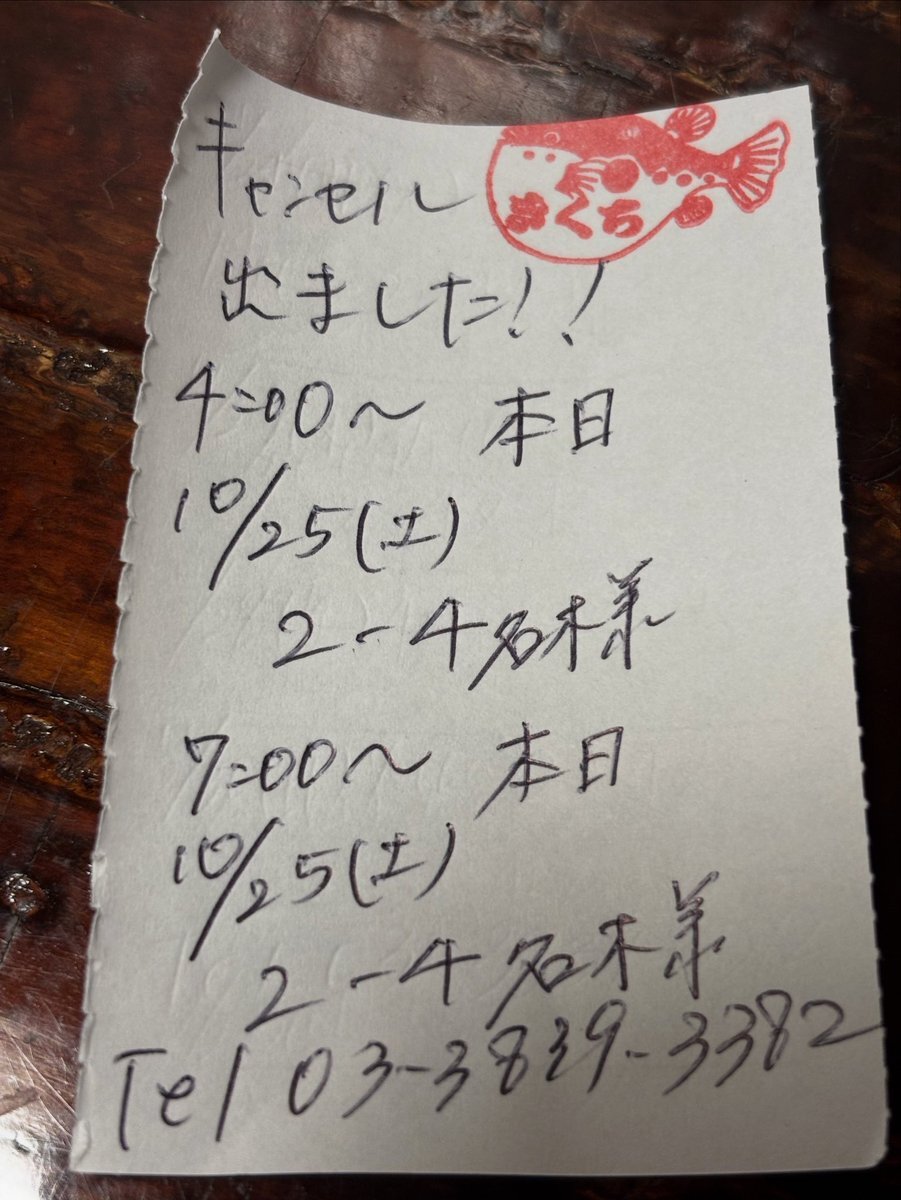 キャンセル
出ました!!
4:00〜 本日
10/25(土)
2-4名様
7:00〜 本日
10/25(土)
2-4名様
Tel 03-3839-3382